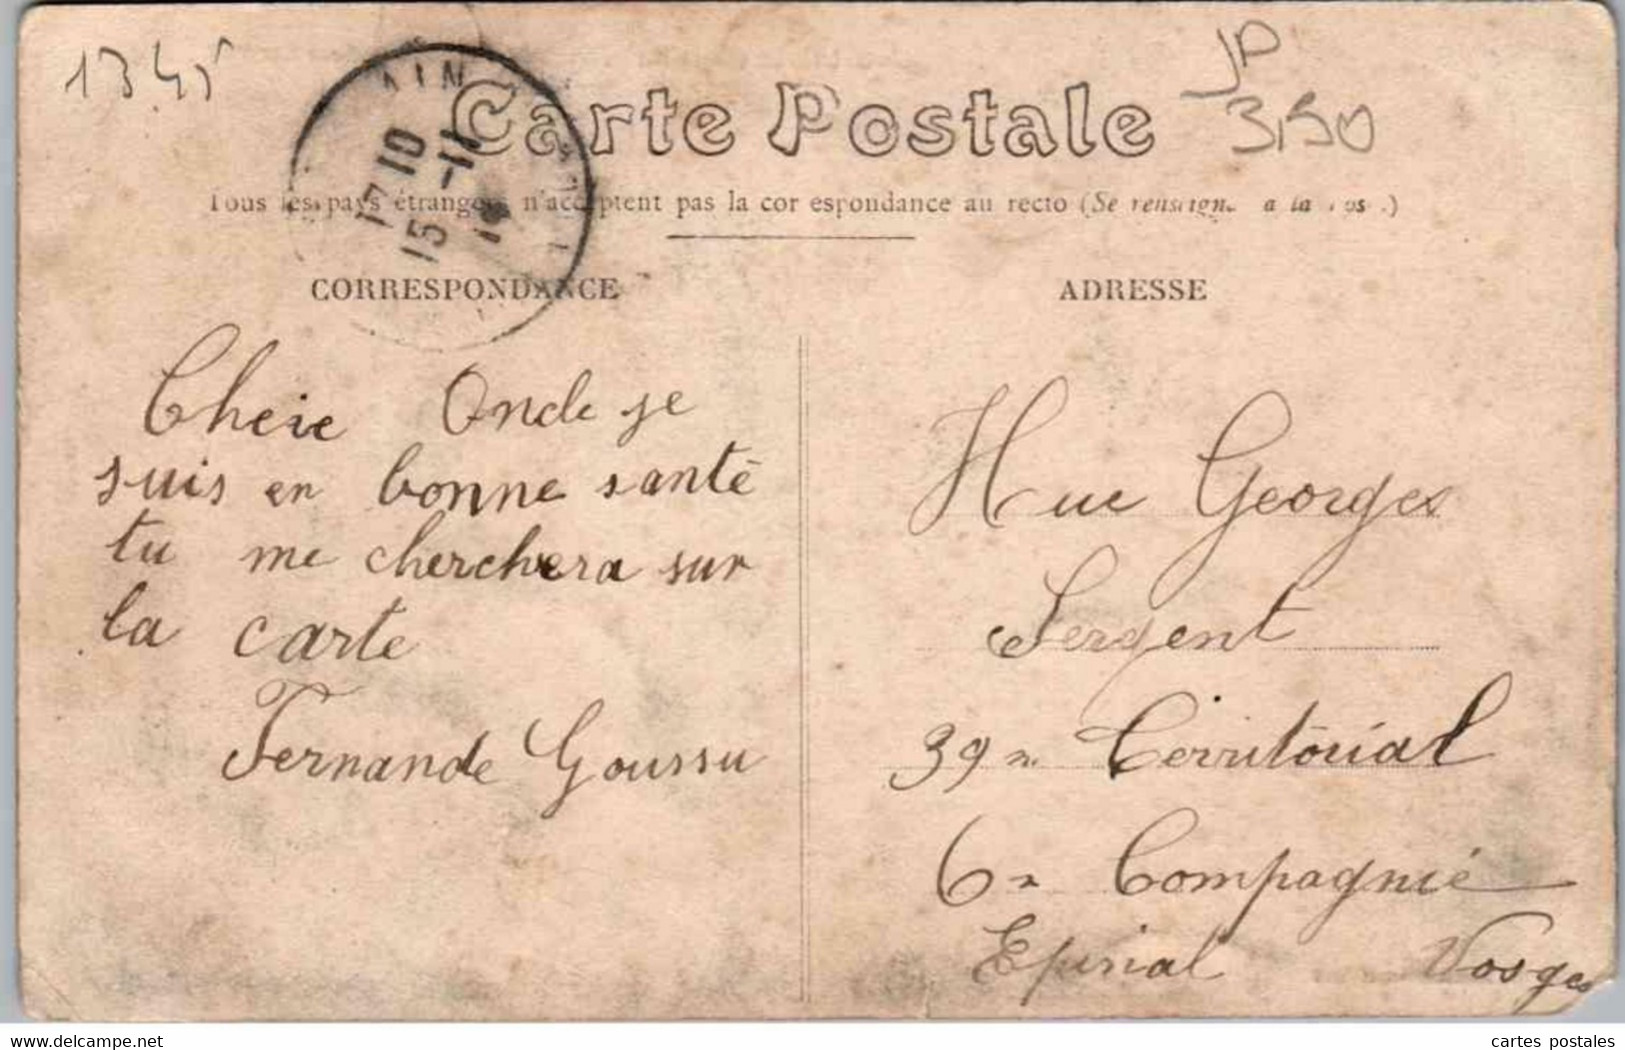 1345
JP
3,50
Carte Postale
Tous les pays étrangers n'acceptent pas la cor espondance au recto (Se renseign a la
AIN
17 10
15 -11
CORRESPONDANCE
ADRESSE
Cheie Onde je
suis en bonne santé
tu me cherchera sur
la carte
Fernande Goussu
Hue Georges
Sergent
39e Territorial
6e Compagnie
Epinal Vosges
My ebay
cartes postales